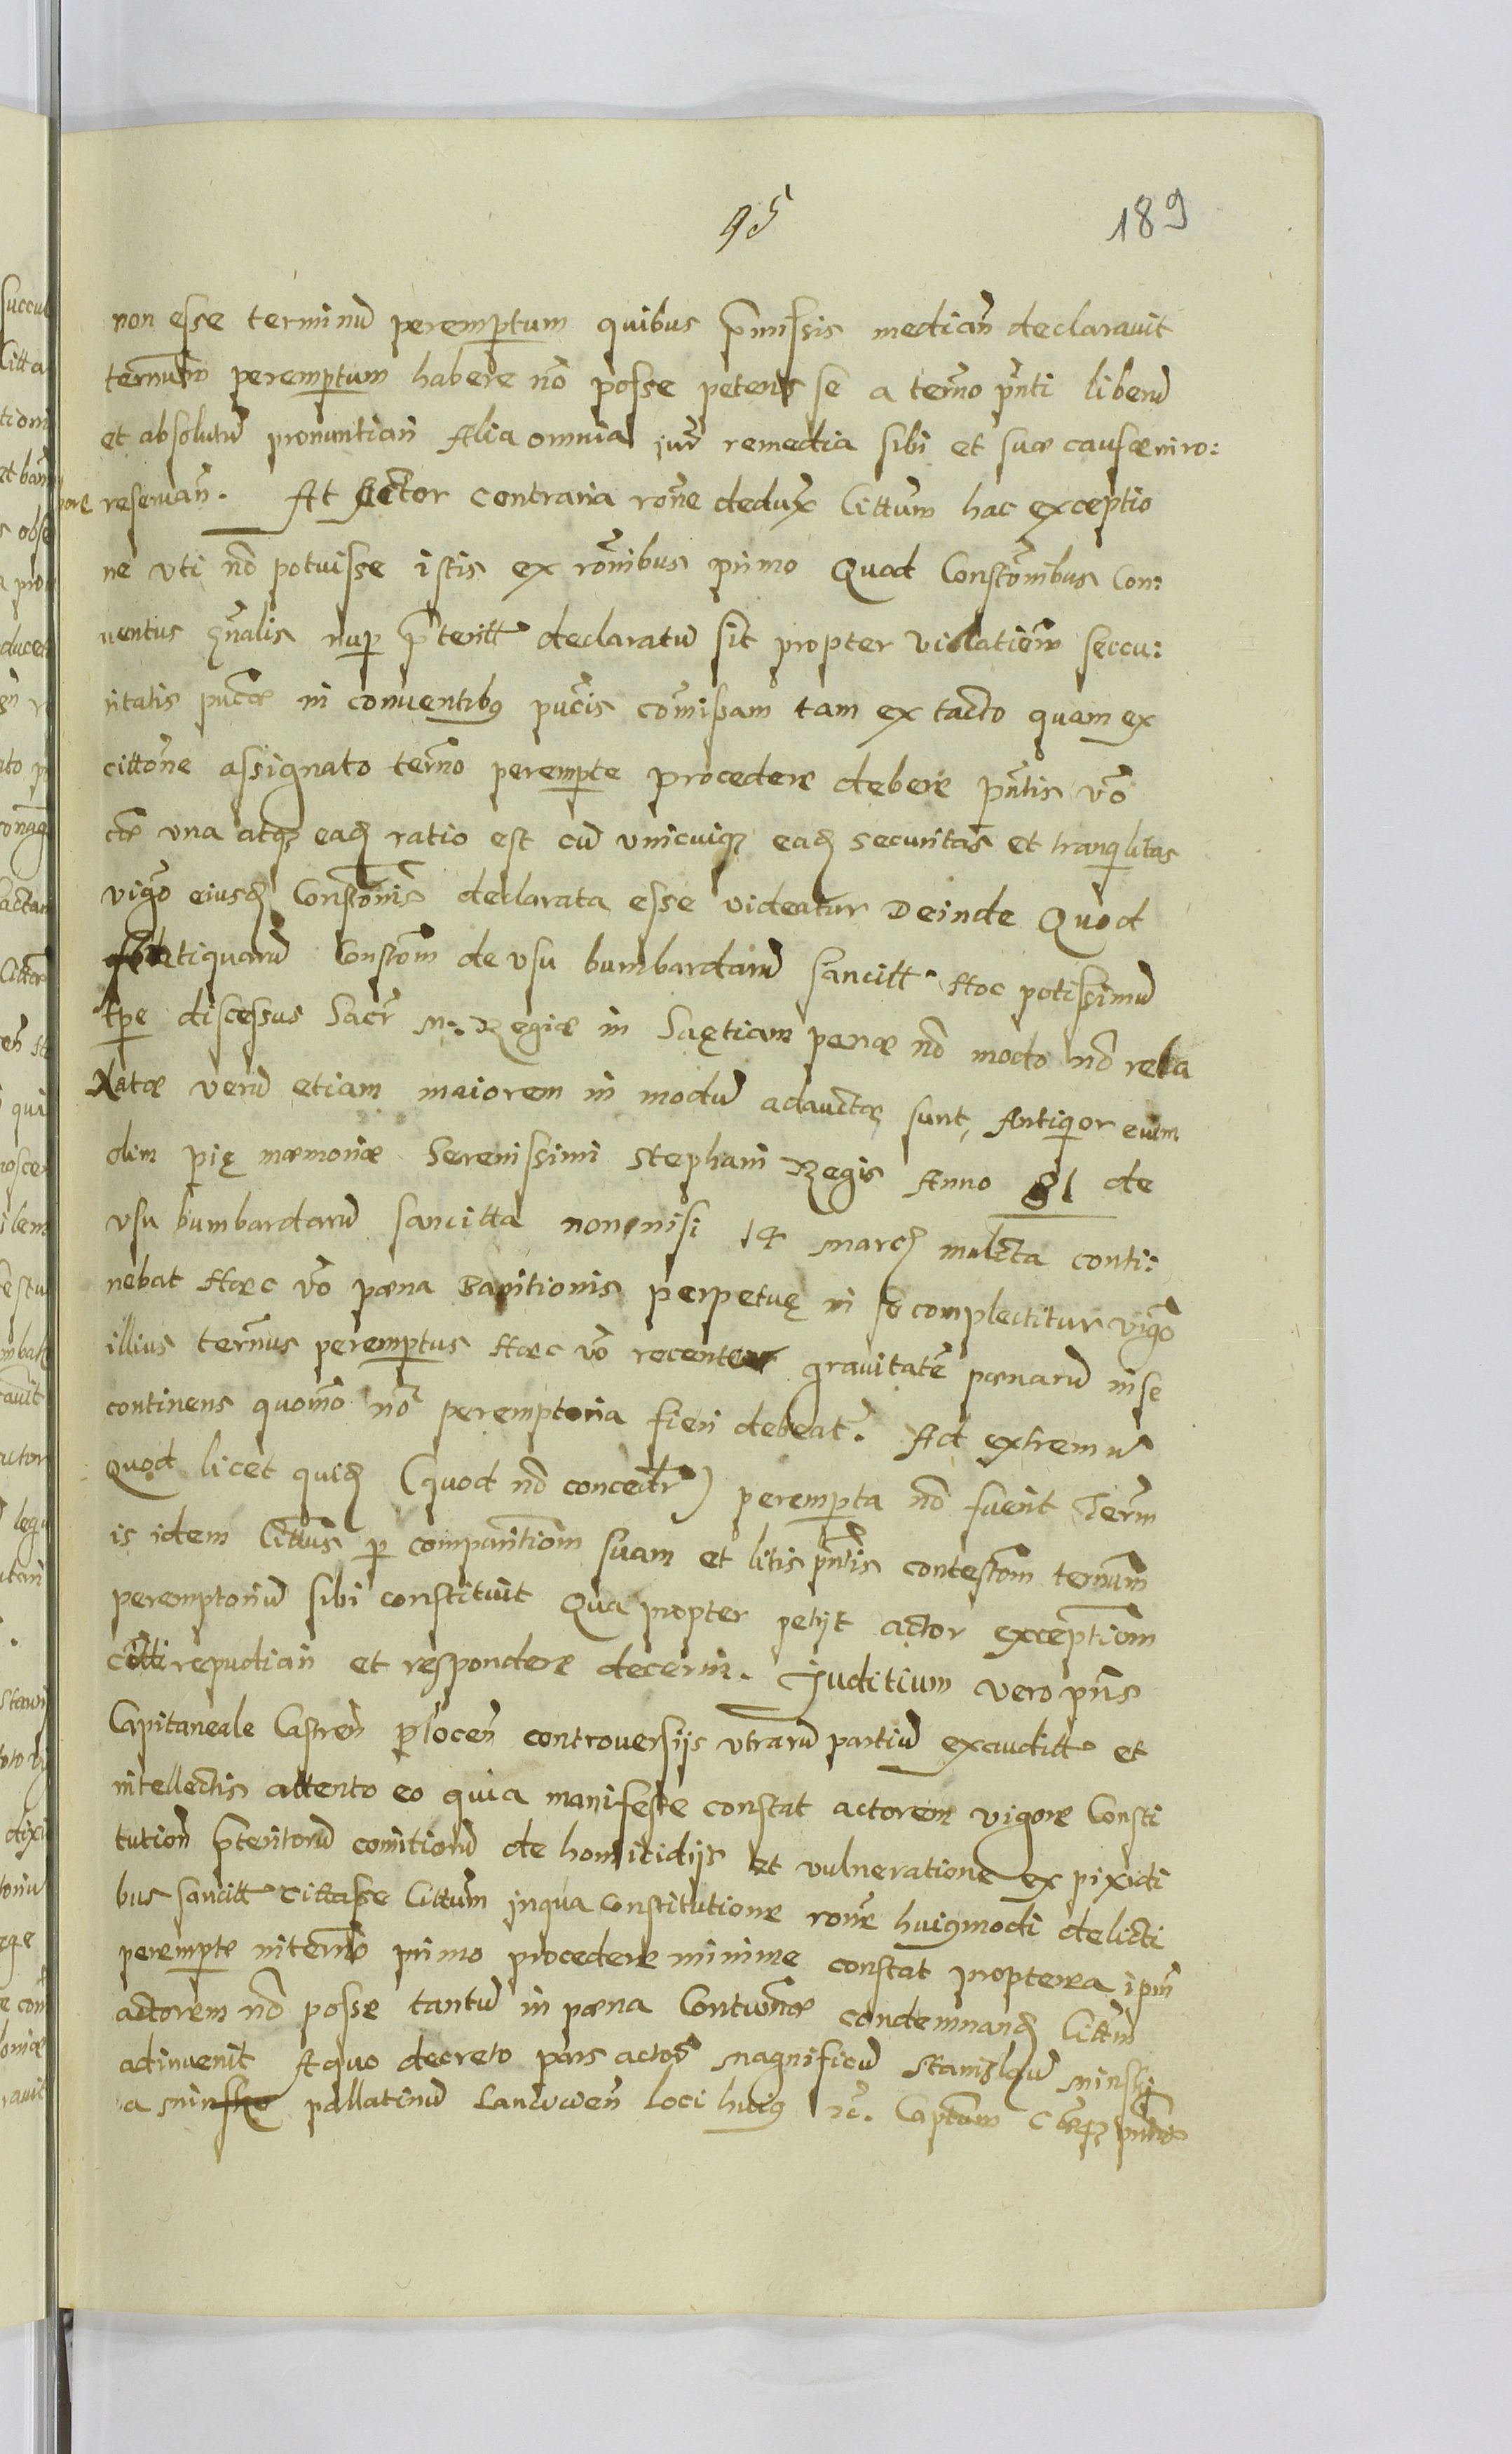 95
189
non esse terminũ peremptum quibus p̃missis median̄ declaravit
term̃um peremptum habere nõ posse petens se a term̃o pñti liberũ
et absolutũ pronuntiari Alia omnia jur̃ remedia sibi et suæ causæ in ro:
reservan̄. At Actor contraria rõne dedux̃ Cittum hac exceptio
ne uti nõ potuisse istis ex rõnibus primo Quod Constõnibus Con:
ventus gñalis nup̱ p̃teritt declaratũ sit propter violatiem̃ seccu:
ritatis pub̃cæ in conventibꝫ pub̃cis com̃issam tam ex tacto quam ex
cittõne assignato term̃o perempte procedere debere pñtis võ
una atqꝫ eadꝫ ratio est cũ unicuiqꝫ eadꝫ securitas et tranqlitas
vigõ eiusdꝫ Constõnis declarata esse videatur Deinde Quod
Antiquarũ Constõm de usu bumbardarũ sancitt Hoc potissimũ
tp̱e discessus Sacr̃ M: Regiæ in Suętiam penæ nõ modo nõ rela
xatæ verũ etiam maiorem in modũ adauctæ sunt, Antiqior enim
olim pię mæmoriæ Serenissimi Stephani Regis Anno 81 de
usu bumbardarũ sancitta non nisi 14 marcꝫ mulcta conti:
nebat Hæc võ pæna Banitionis perpetuę in se complectitur vigõ
illius term̃us peremptus Hæc võ recenter gravitatẽ pænarũ in se
continens quom̃o nõ peremptoria fieri debeat. Ad extremũ
Quod licet quidꝫ (quod nõ concedtr̃) perempta nõ fuerit Term̃
is idem Cittus p̱ comparitiom̃ suam et litis pñtis contestõm term̃um
peremptoriũ sibi constituit Qua propter petijt actor exceptiom̃
Citti repudiari et respondere decerni. Juditium vero pñs
Capitaneale Castren̄ Plocen̄ controversijs utrarũ partiũ exauditt et
intellectis attento eo quia manifeste constat actorem vigore Consti
tution̄ p̃teritorũ comitiorũ de homicidijs et vulneratione ex pixidi
bus sancitt Cittasse Cittum in qua Constitutione rõne huiꝫmodi delicti
perempte in term̃o primo procedere minime constat propterea ipm̃
actorem nõ posse tantũ in pæna Contum̃æ condemnandꝫ Cittm̃
adinvenit A quo decreto pars actor̃ Magnificũ Stanislaũ Minski
a Minsko pallatinũ Lancicien̄ loci huiꝫ rc̃. Captum̃